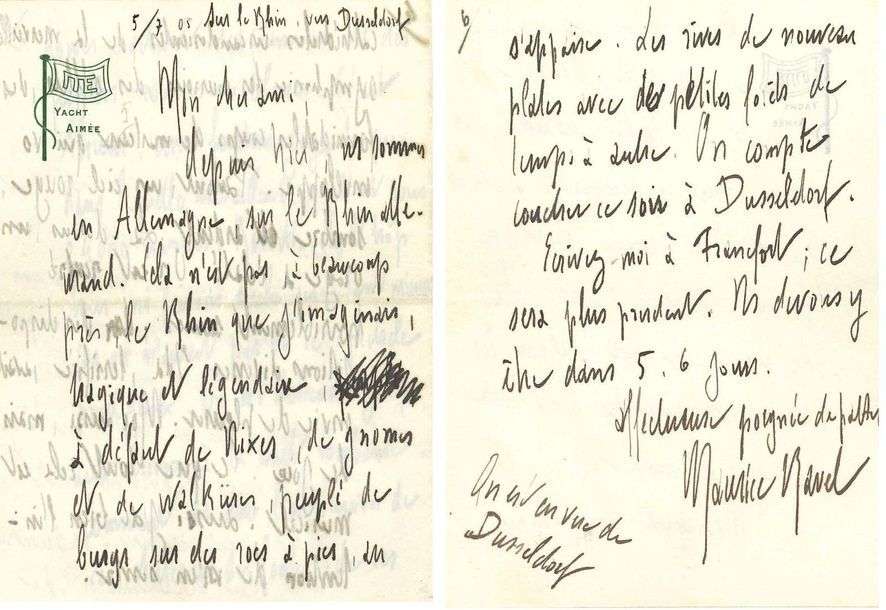 5/7 05 Sur le Rhin, vers Dusseldorf
ME
YACHT
AIMÉE
Mon cher ami,
depuis hier, ns sommes
en Allemagne sur le Rhin alle-
mand. Cela n'est pas à beaucoup
près le Rhin que j'imaginais,
tragique et légendaire,
à défaut de Nixes, de gnomes
et de Walküres, peuplé de
burgs sur des rocs à pics, au
6/
s'appaise. Les rives de nouveau
plates avec des petites forêts de
temps à autre. On compte
coucher ce soir à Dusseldorf.
Ecrivez-moi à Francfort; ce
sera plus prudent. Ns devons y
être dans 5. 6 jours.
affectueuse poignée de patte
Maurice Ravel
On est en vue de
Dusseldorf